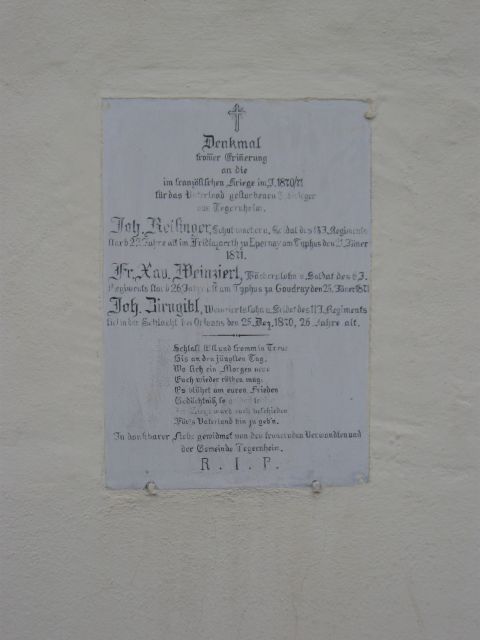 Denkmal
from̄er Erin̄erung
an die
im französischen Kriege im J. 1870/71
für das Vaterland gestorbenen 3 Krieger
aus Tegernheim.
Joh. Reisinger, Schuhmacher u. Soldat des Regiments
starb 25 Jahre alt im Feldlazarethe zu Epernay am Typhus den 21. Jäner
1871.
Fr. Xav. Weinzierl, u. Soldat des
Regiments starb 26 Jahre alt am Typhus zu Goudray den 25. Jäner 1871
Joh. Zirngibl, u. Soldat des Regiments
fiel in der Schlacht bei Orleans den 25. Dez. 1870, 26 Jahre alt.
Schlaft still und fromm in Treue
Bis an den jüngsten Tag,
Wo sich ein Morgen neue
Euch wieder röthen mag;
Es blühet um euren Frieden
Gedächtniß, so
ward euch beschieden
Für's Vaterland hin zu geh'n.
In dankbarer Liebe gewidmet von den trauernden Verwandten und
der Gemeinde Tegernheim.
R. I. P.